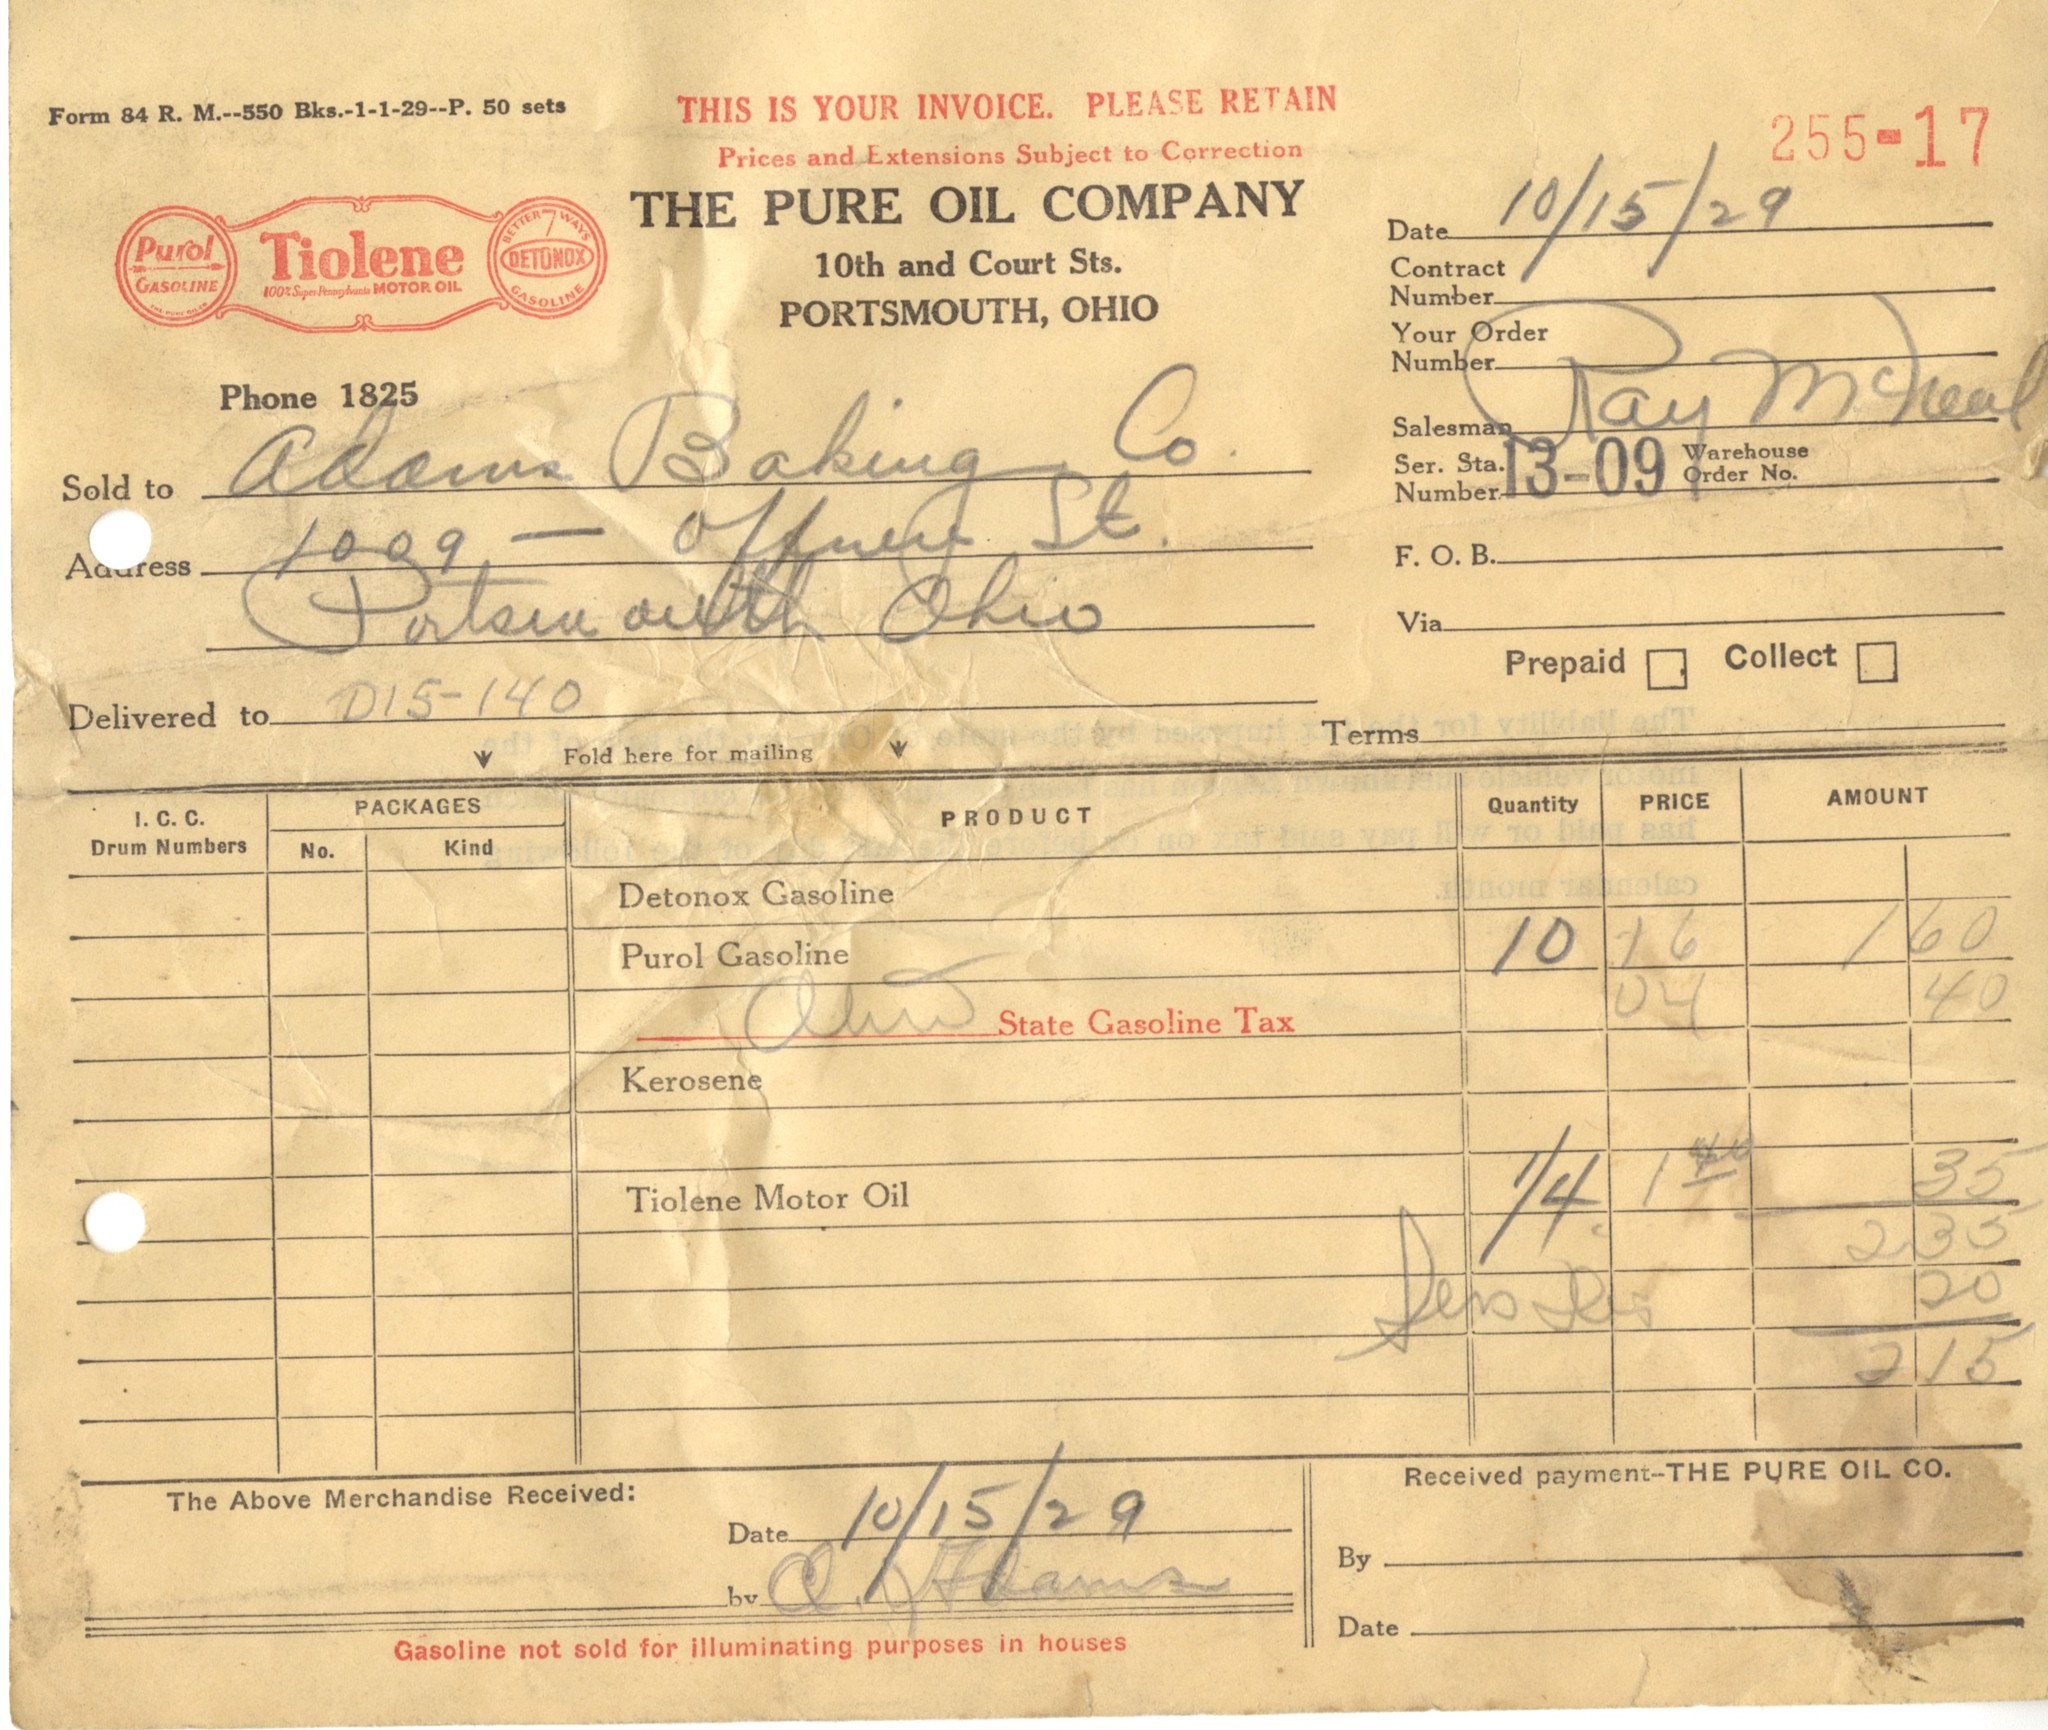 Form 84 R. M.--550 Bks.-1-1-29--P. 50 sets
THIS IS YOUR INVOICE. PLEASE RETAIN
Prices and Extensions Subject to Correction
255-17
THE PURE OIL COMPANY
10th and Court Sts.
PORTSMOUTH, OHIO
Purol
GASOLINE
Tiolene
100% Super Pennsylvania MOTOR OIL
BETTER 7 WAYS
DETONOX
GASOLINE
Phone 1825
Date 10/15/29
Contract
Number
Your Order
Number
Salesman Ray McNeal
Ser. Sta.
Number 13-09 Warehouse
Order No.
F. O. B.
Via
Prepaid Collect
Terms
Sold to Adams Baking Co.
Address 1009 - Offnere St.
Portsmouth Ohio
Delivered to D15-140
Fold here for mailing
I. C. C.
Drum Numbers PACKAGES
No. Kind PRODUCT Quantity PRICE AMOUNT
Detonox Gasoline
Purol Gasoline 10 16 1 60
Ohio State Gasoline Tax 04 40
Kerosene
Tiolene Motor Oil 1/4 1 40 35
2 35
Less Dis 20
2 15
The Above Merchandise Received:
Date 10/15/29
by Adams
Received payment--THE PURE OIL CO.
By
Date
Gasoline not sold for illuminating purposes in houses